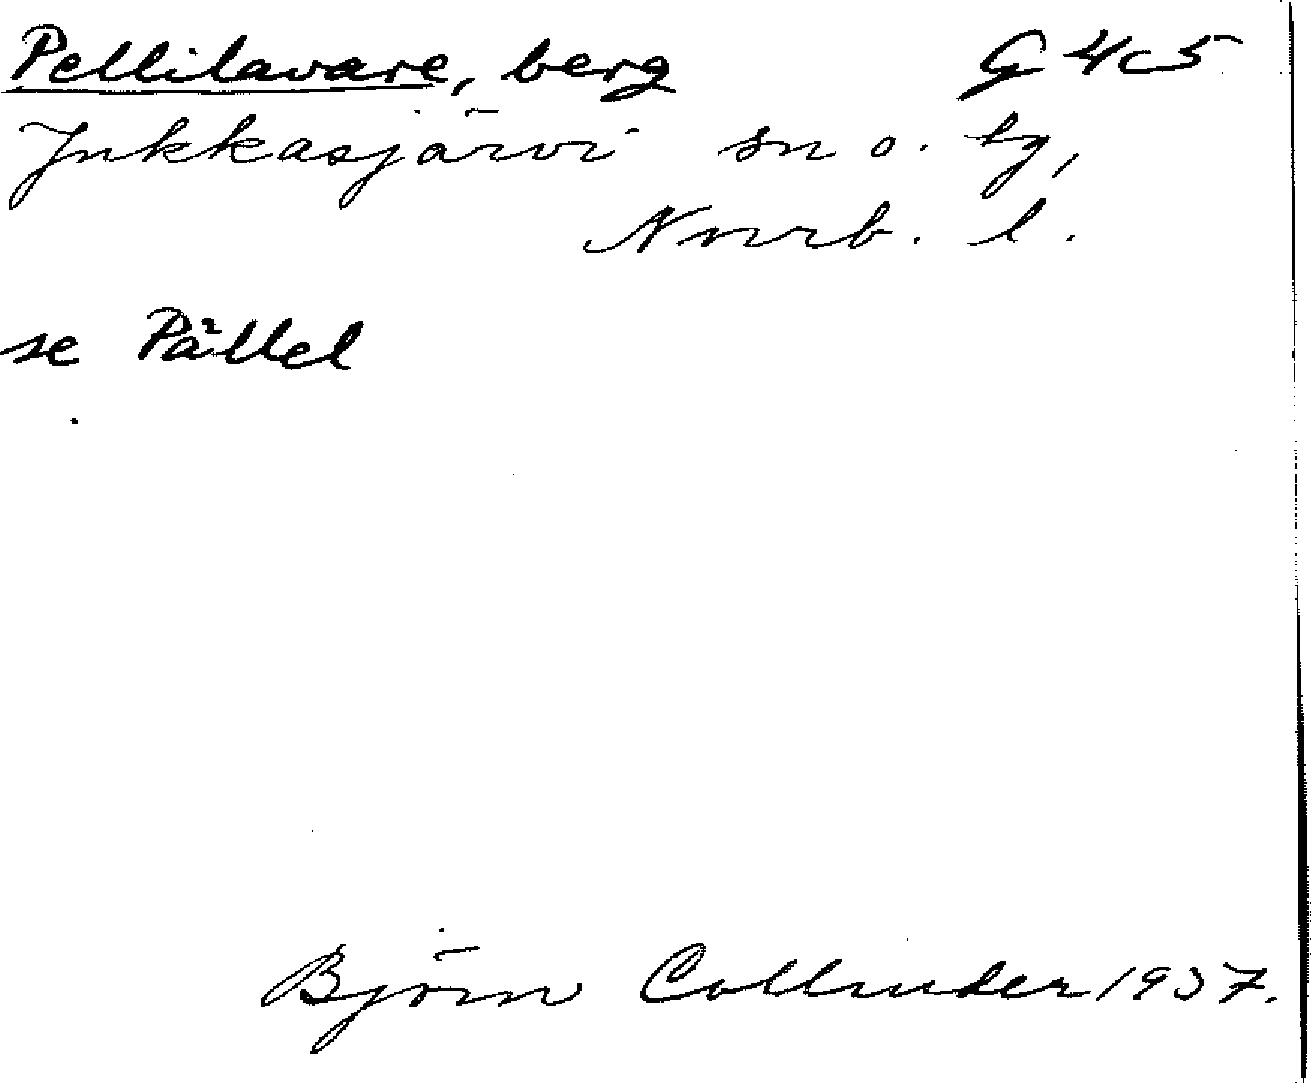 Pellilavare, berg G 4c5
Jukkasjärvi sn o. tg,
Norrb. l.
se Pällel
Björn Collinder 1937.